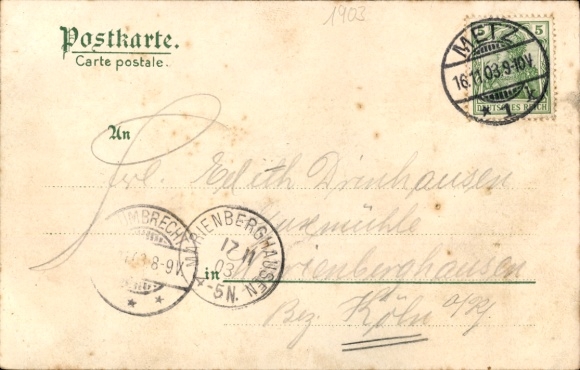 1903
Postkarte.
Carte postale.
5 5
DEUTSCHES REICH
METZ
16.11.03.9-10V.
* 1 k
An
Frl. Edith Drinhausen
in Marienberghausen
Bez. Köln a/Rh.
MBRECHT
8-9V.
* *
MARIENBERGHAUSEN
17 11
03
4-5N.